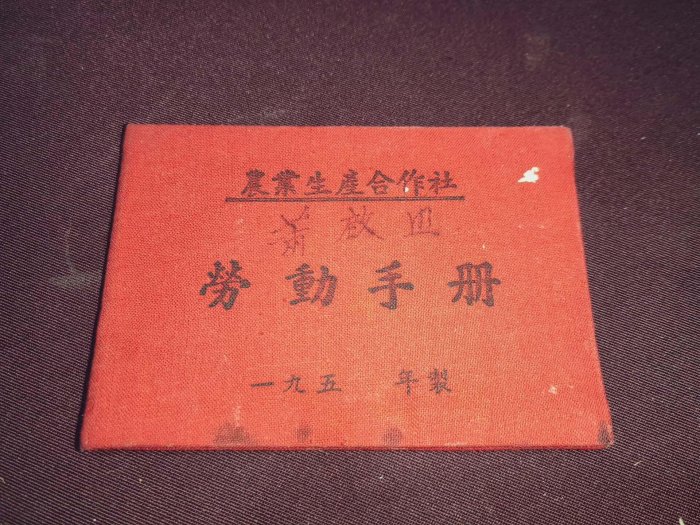 農業生產合作社
蕭啟
勞動手册
一九五 年製